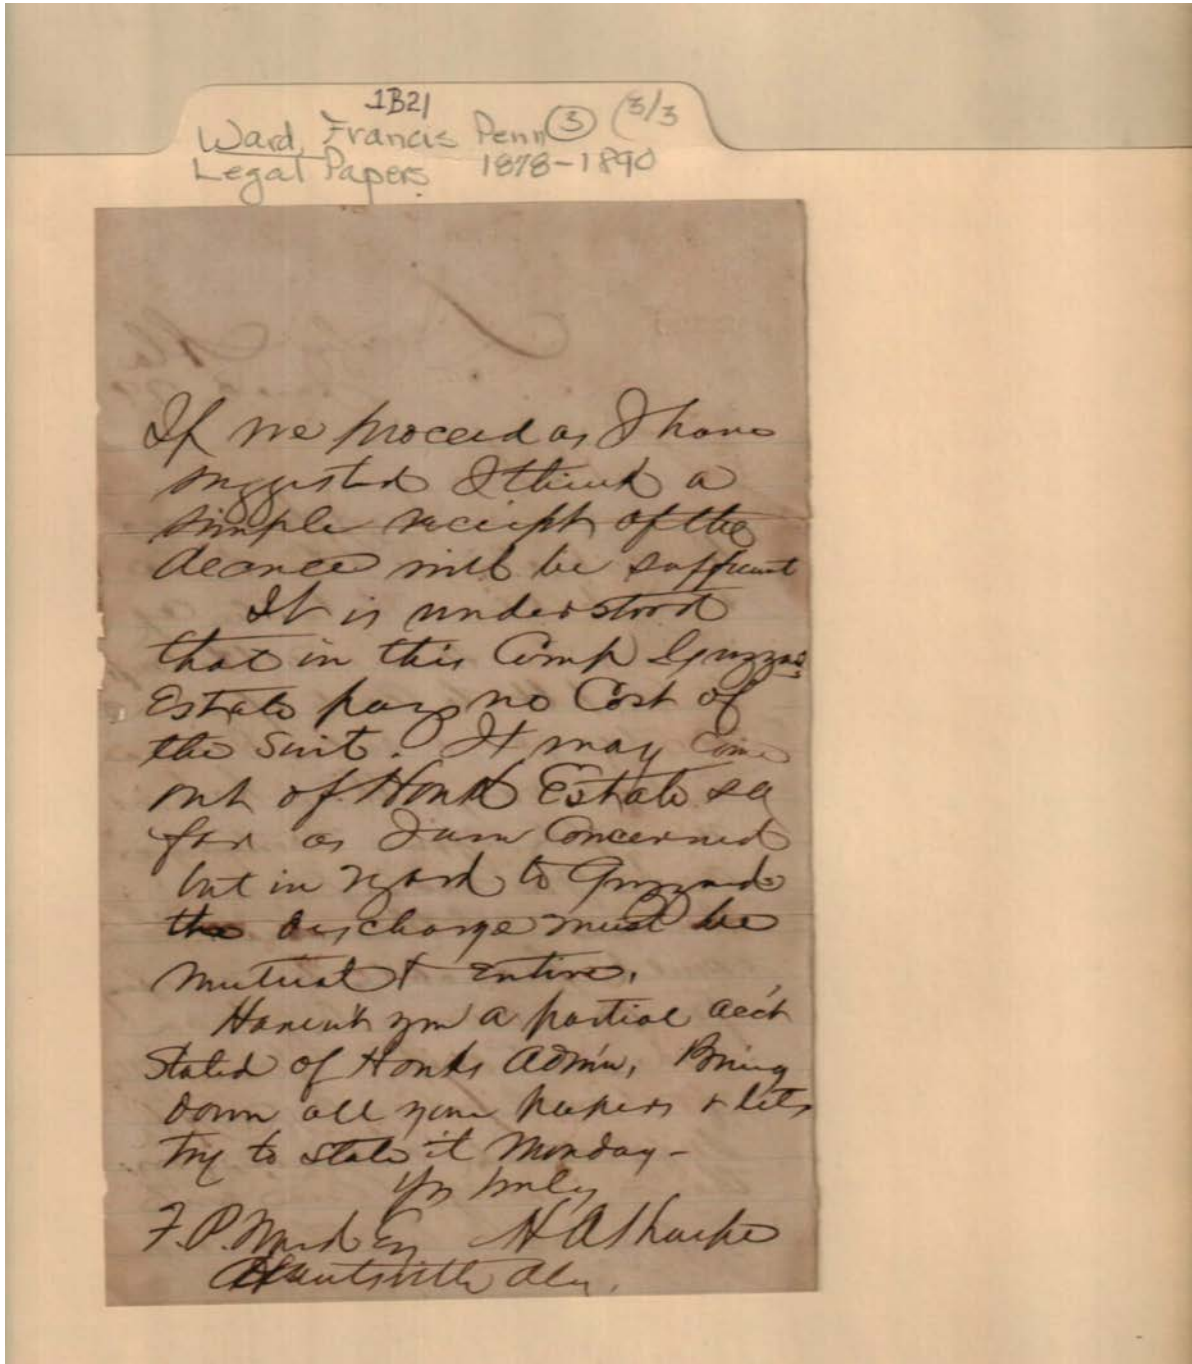 1B21
Ward, Francis Penn (3) (3/3
Legal Papers 1878-1890
If we proceed as I have
suggested I think a
simple receipt of the
decree will be sufficient
It is understood
that in this Comp
Estate pays no Cost of
the Suit. It may come
out of Estate so
far as I am Concerned
but in regard to
the discharge must be
mutual & entire.
Haven't you a partial acc't
Stated of Admn, Bring
down all your papers & lets
try to state it Monday-
Yrs truly
F. P. Ward Esq H A Sharpe
Huntsville Ala.